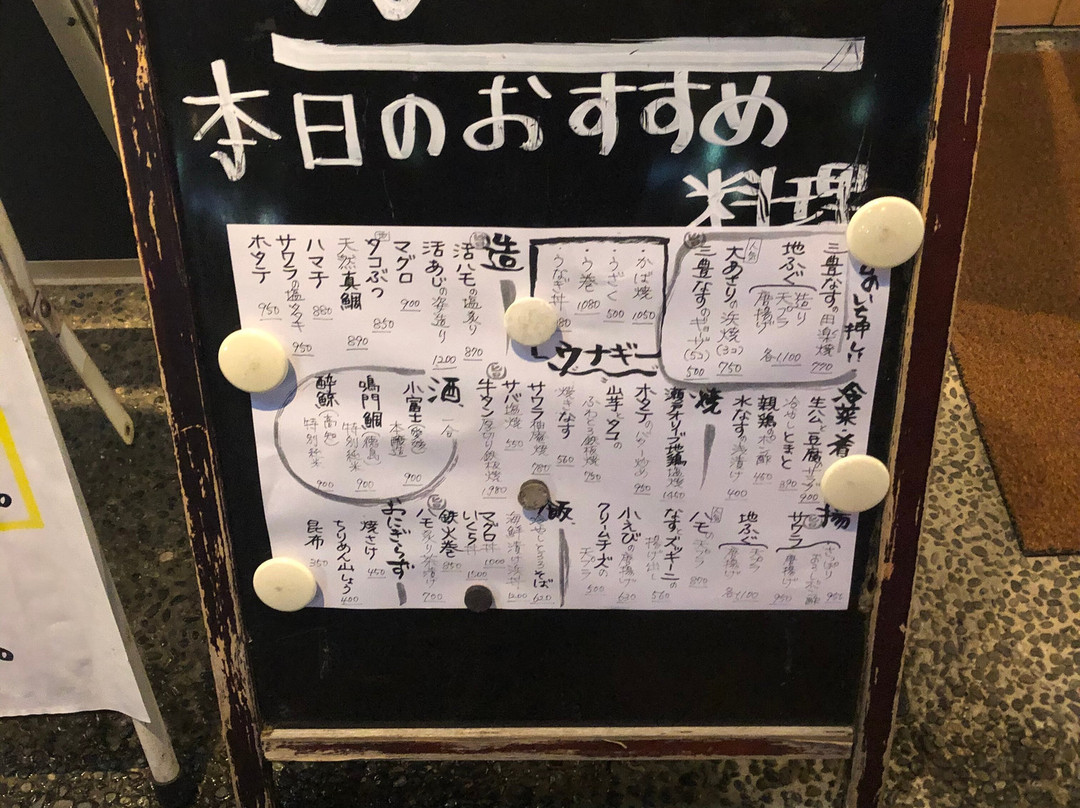 本日のおすすめ
料理
いち押し!!
三豊なすの田楽焼 770
地ふぐ
造り
天プラ
唐揚げ
各1,100
人気
大あさりの浜焼(3コ) 750
三豊なすのギョーザ(5コ) 500
ウナギ
かば焼 1050
うざく 500
う巻 1080
うなぎ丼
造
活ハモの塩炙り 870
活あじの姿造り 1200
マグロ 900
タコぶつ 850
天然真鯛 890
ハマチ 880
サワラの塩タタキ 950
ホタテ 950
冷菜・肴
生ハムと豆腐のサラダ 900
冷やしとまと 390
親鶏のポン酢 450
水なすの浅漬け 400
焼
瀬戸内オリーブ地鶏塩焼 1400
ホタテのバター炒め 950
山芋とタコの
ふわとろ鉄板焼 750
焼きなす 560
サワラ柚庵焼 780
サバ塩焼 550
牛タン厚切り鉄板焼 1,980
酒
一合
小富士(愛媛)
本醸造 900
鳴門鯛(徳島)
特別純米 900
酔鯨(高知)
特別純米 900
揚
サワラ
唐揚げ 950
地ふぐ
天プラ
唐揚げ
各1,100
ハモの天プラ 870
なすとズッキーニの
揚げ出し 560
小えびの唐揚げ 630
クリームチーズの
天プラ 500
飯
冷やしとろろそば 620
海鮮漬け丼 1200
マグロ丼 1000
いくら丼 1500
鉄火巻 850
ハモ炙り茶漬け 700
おにぎらず
焼さけ 450
ちりめん山しょう 400
昆布 350